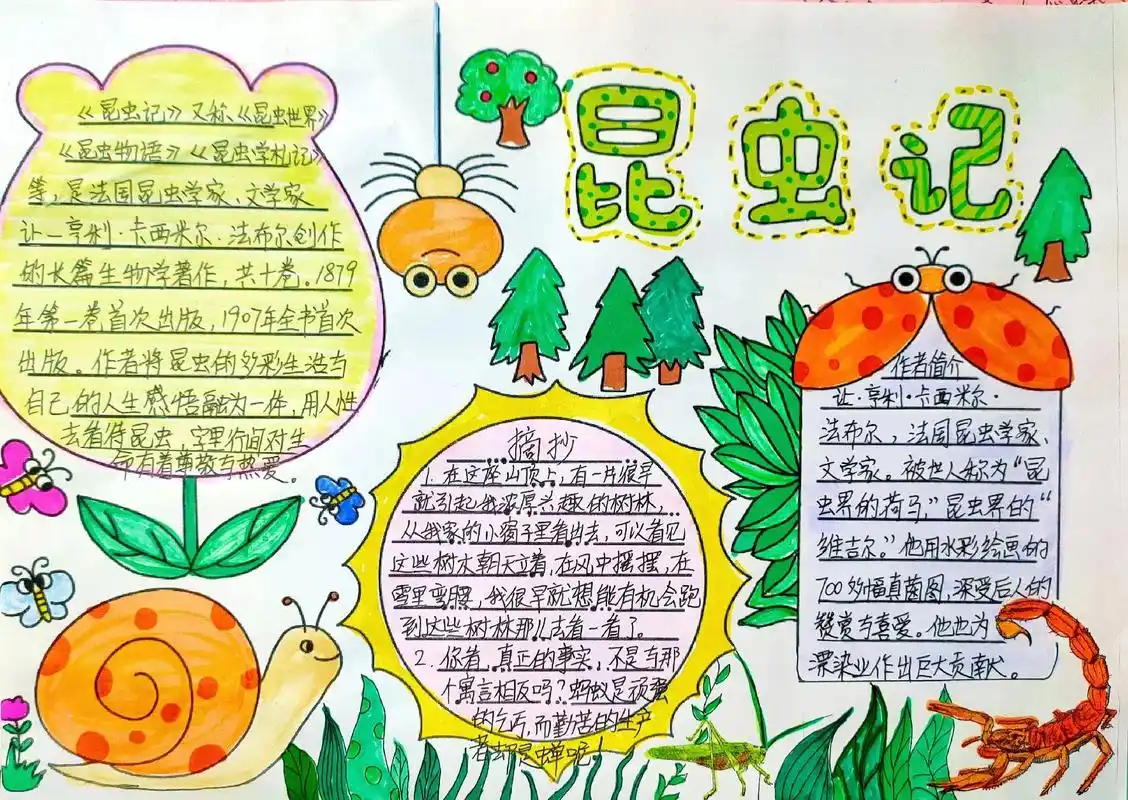 昆虫记
《昆虫记》又称《昆虫世界》
《昆虫物语》《昆虫学札记》
等，是法国昆虫学家、文学家
让-亨利·卡西米尔·法布尔创作
的长篇生物学著作，共十卷。1879
年第一卷首次出版，1907年全书首次
出版。作者将昆虫的多彩生活与
自己的人生感悟融为一体，用人性
去看待昆虫，字里行间对生
命有着尊敬与热爱。
摘抄
1. 在这座山顶上，有一片很早
就引起我浓厚兴趣的树林，
从我家的小窗子里看出去，可以看见
这些树木朝天立着，在风中摇摆，在
雪里弯腰，我很早就想能有机会跑
到这些树林那儿去看一看了。
2. 你看，真正的事实，不是与那
个寓言相反吗？蚂蚁是顽强
的乞丐，而勤苦的生产
者却是蝉呢！
作者简介
让·亨利·卡西米尔·
法布尔，法国昆虫学家、
文学家。被世人称为“昆
虫界的荷马，”昆虫界的“
维吉尔。”他用水彩绘画的
700多幅真菌图，深受后人的
赞赏与喜爱。他也为
漂染业作出巨大贡献。